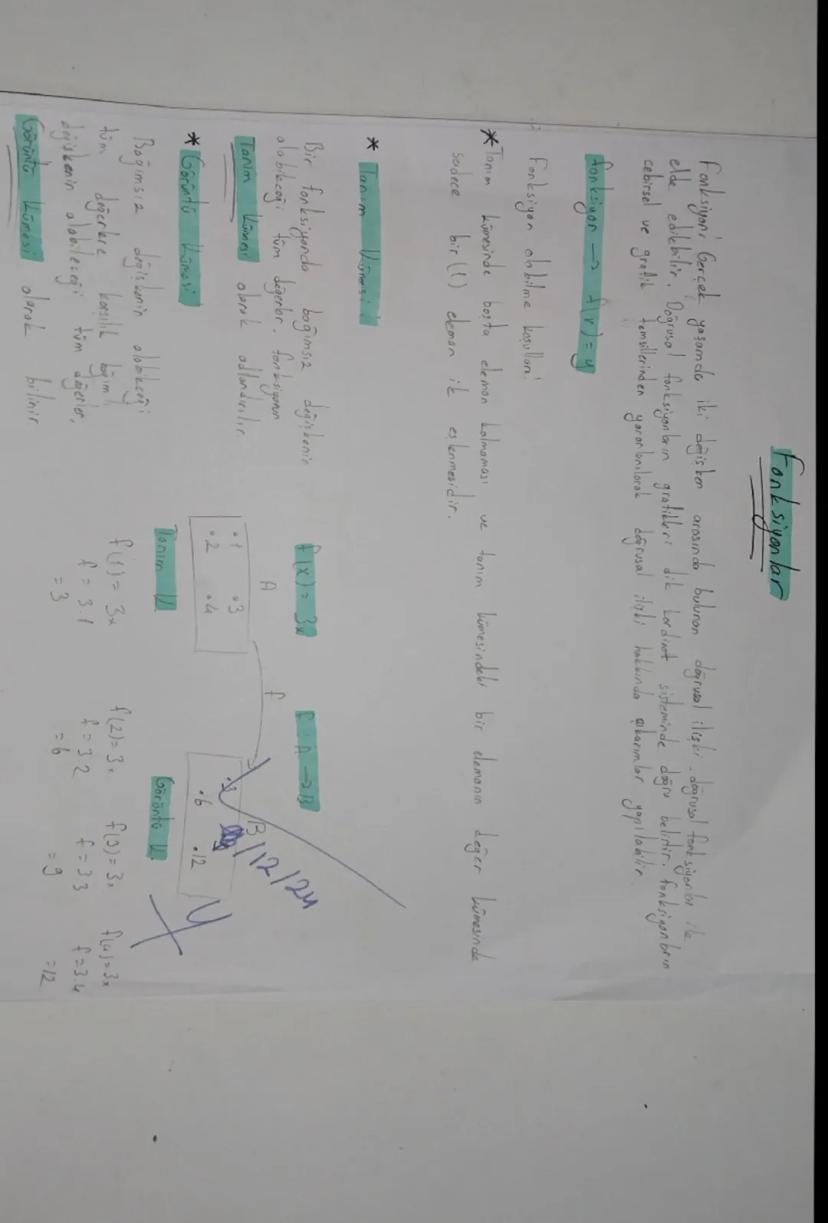 Fonksiyonlar
Fonksiyon: Gerçek yaşamda iki değişken arasında bulunan doğrusal ilişki, doğrusal fonksiyonlar ile
elde edilebilir. Doğrusal fonksiyonların grafikleri dik kordinat sisteminde doğru belirtir. Fonksiyonların
cebirsel ve grafik temsillerinden yararlanılarak doğrusal ilişki hakkında çıkarımlar yapılabilir.
fonksiyon → f(x) = y
Fonksiyon olabilme koşulları:
* Tanım kümesinde boşta eleman kalmaması ve tanım kümesindeki bir elemanın değer kümesinde
sadece bir (1) eleman ile eşlenmesidir.
* Tanım Kümesi
Bir fonksiyonda bağımsız değişkenin
alabileceği tüm değerler, fonksiyonun
Tanım kümesi olarak adlandırılır
* Görüntü Kümesi
Bağımsız değişkenin alabileceği
tüm değerlere karşılık bağımlı
değişkenin alabileceği tüm değerler,
Görüntü Kümesi olarak bilinir
f(x) = 3x
f: A → B
A
f
B
.1 .3
.2 .4
.6 .12
/12/24
Tanım K.
Görüntü K.
f(1) = 3x
f = 3.1
= 3
f(2) = 3x
f = 3.2
= 6
f(3) = 3x
f = 3.3
= 9
f(4) = 3x
f = 3.4
= 12